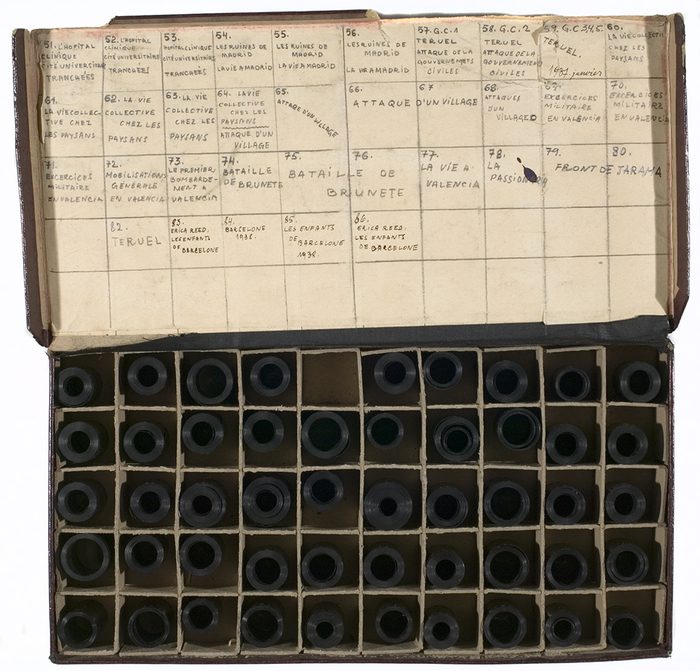 51. L'HOPITAL
CLINIQUE
CITÉ UNIVERSITAIRE
TRANCHÉES
52. L'HOSPITAL
CLINIQUE
CITÉ UNIVERSITAIRE
TRANCHÉES
53.
HOPITAL CLINIQUE
CITÉ UNIVERSITAIRE
TRANCHÉES
54.
LES RUINES DE
MADRID
LA VIE A MADRID
55.
LES RUINES DE
MADRID
LA VIE A MADRID
56.
LES RUINES DE
MADRID
LA VIE A MADRID
57. G.C. 1
TERUEL
ATTAQUE DE LA
GOUVERNEMETS
CIVILES
58. G.C. 2
TERUEL
ATTAQUE DE LA
GOUVERNEMENTS
CIVILES
59. G.C 3,4,5.
TERUEL.
janvier
60.
LA VIE COLLECTI
CHEZ LES
PAYSANS
61.
LA VIE COLLEC-
TIVE CHEZ
LES PAYSANS
62. LA VIE
COLLECTIVE
CHEZ LES
PAYSANS
63. LA VIE
COLLECTIVE
CHEZ LES
PAYSANS
64. LA VIE
COLLECTIVE
CHEZ LES
PAYSANS
ATTAQUE D'UN
VILLAGE
65.
ATTAQUE D'UN VILLAGE
66. 67
ATTAQUE D'UN VILLAGE
68.
ATTAQUES
D'UN
VILLAGE
69.
EXERCICES
MILITAIRE
EN VALENCIA
70.
EXERCICES
MILITAIRE
EN VALENCIA
71.
EXCERCICES
MILITAIRE
EN VALENCIA
72.
MOBILISATION
GÉNÉRALE
EN VALENCIA
73.
LE PREMIER
BOMBARDE-
MENT A
VALENCIA
74.
BATAILLE
DE BRUNETE
75. 76.
BATAILLE DE
BRUNETE
77.
LA VIE A
VALENCIA
78.
LA
79. 80.
FRONT DE JARAMA
82.
TERUEL
83.
ERICA REED.
LES ENFANTS
DE BARCELONE
84.
BARCELONE
1938.
85.
LES ENFANTS
DE BARCELONE
1938.
86.
ERICA REED.
LES ENFANTS
DE BARCELONE